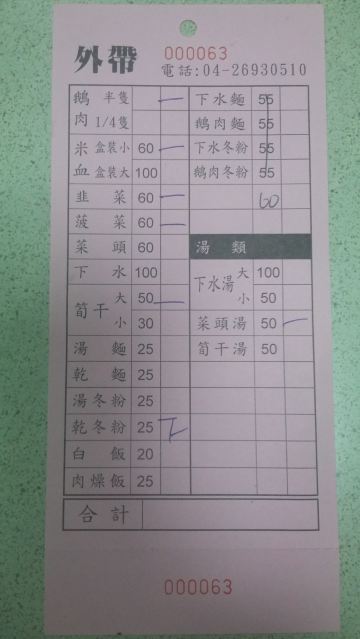 外帶 000063
電話:04-26930510
鵝肉 半隻 一
1/4隻
米血 盒裝小 60 一
盒裝大 100
韭菜 60 一
菠菜 60 一
菜頭 60
下水 100
筍干 大 50 一
小 30
湯麵 25
乾麵 25
湯冬粉 25
乾冬粉 25 下
白飯 20
肉燥飯 25
下水麵 55
鵝肉麵 55
下水冬粉 55
鵝肉冬粉 55
60
湯類
下水湯 大 100
小 50
菜頭湯 50 一
筍干湯 50
合計
000063